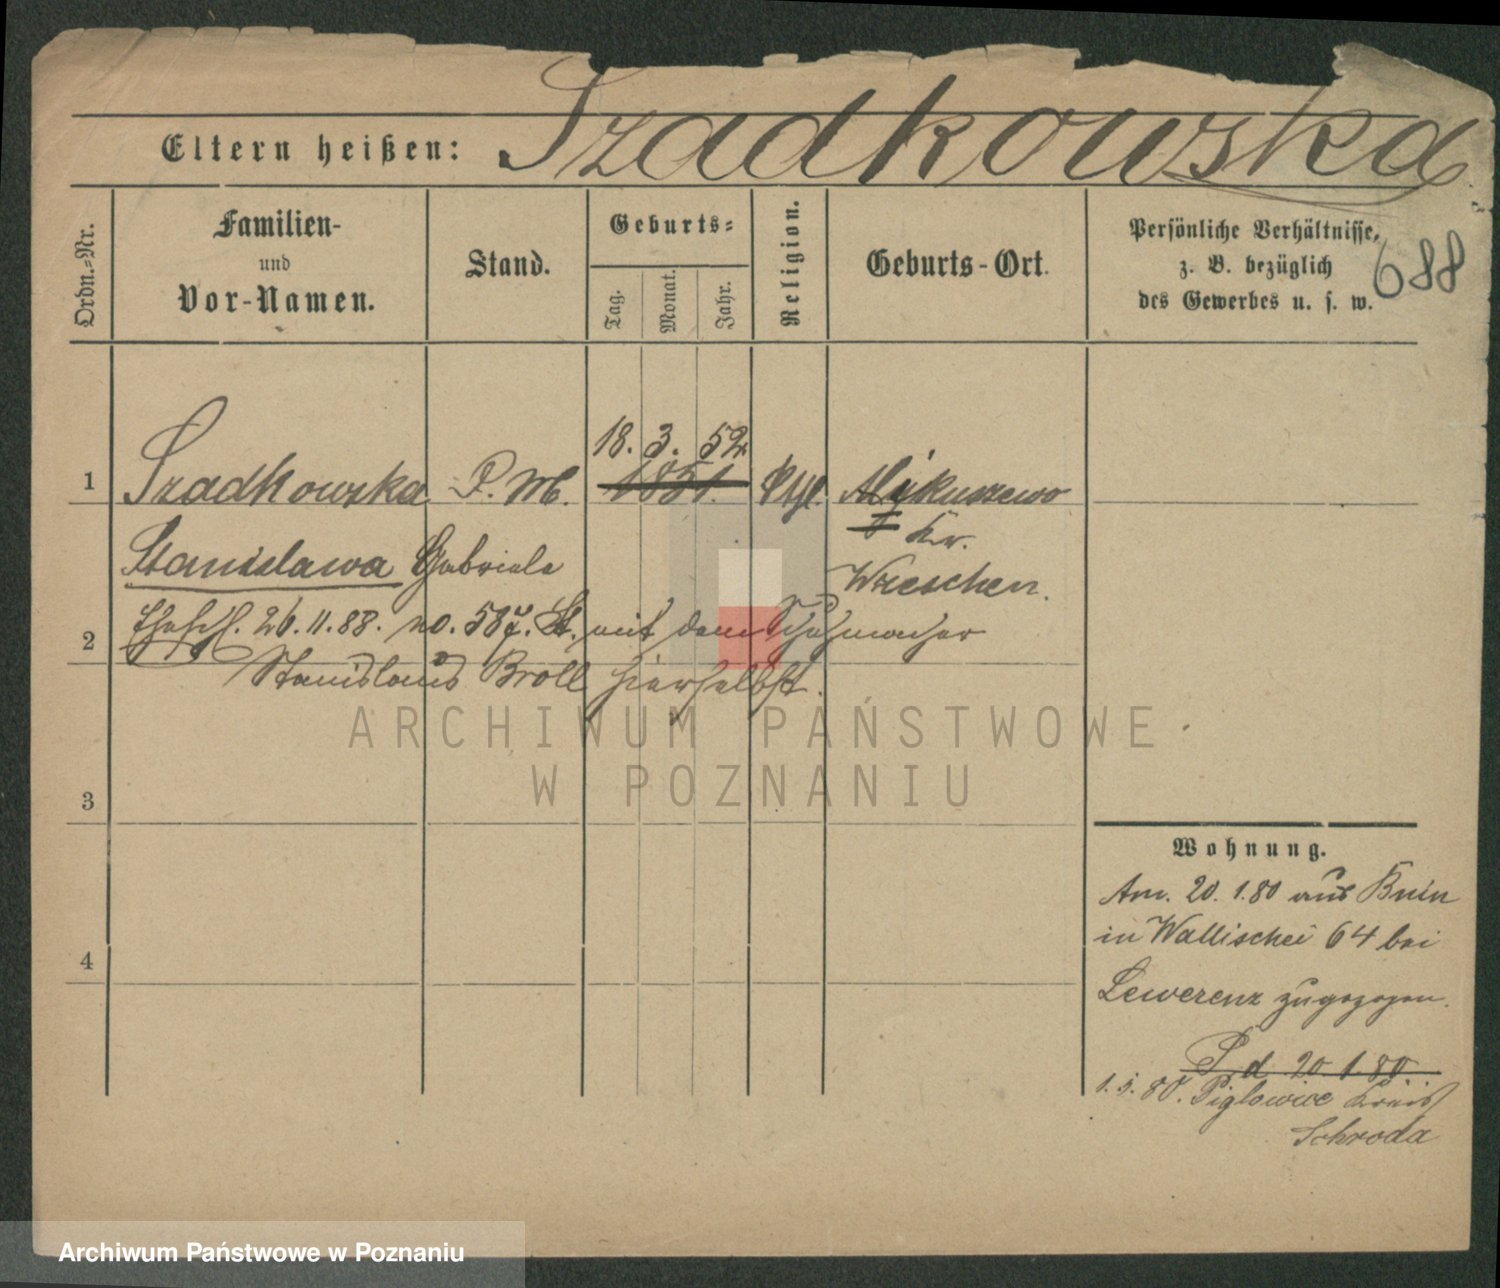 Szadkowska
Eltern heißen:
Ordn.=Nr.
Familien-
und
Vor-Namen.
Stand.
Geburts=
Tag.
Monat.
Jahr.
Religion.
Geburts-Ort.
Persönliche Verhältnisse,
z. B. bezüglich
des Gewerbes u. s. w.
688
18. 3. 52
1 Szadkowska P. M. 1851. Mikuszewo
Kr.
Stanislawa Gabriele Wreschen.
26.11.88. no. 587. St. mit dem Schuhmacher
2
Stanislaus Broll hierselbst.
ARCHIWUM PAŃSTWOWE
W POZNANIU
3
Wohnung.
Am. 20. 1. 80 aus Bnin
in Wallischei 64 bei
4
Lewerenz zugezogen.
d 20. 1. 80.
1. 5. 80. Piglowice Kreis
Schroda
Archiwum Państwowe w Poznaniu